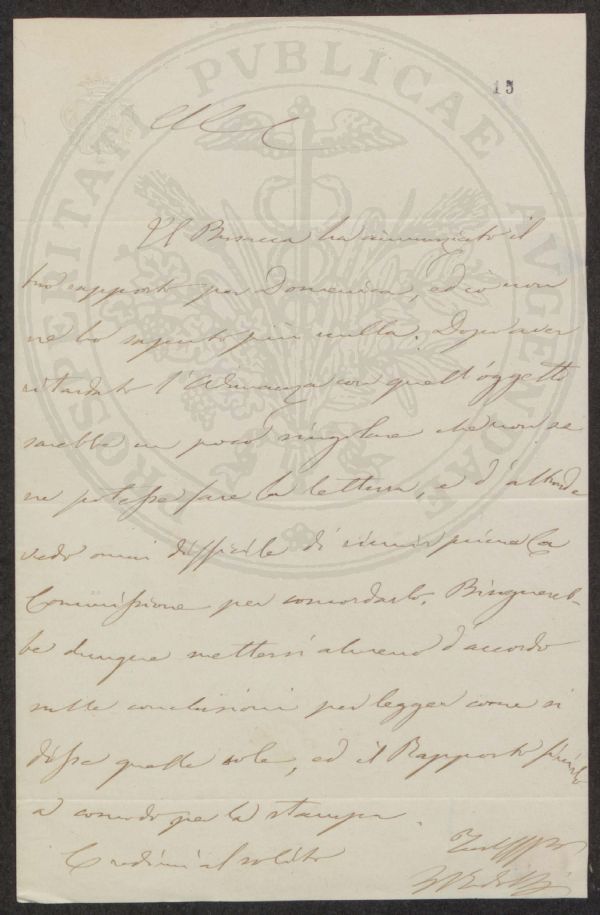 PROSPERITATI PVBLICAE AVGENDAE
15
C. C.
Il Busacca ha annunziato il
tuo rapporto per Domenica, ed io non
ne ho saputo più nulla. Dopo aver
ritardato l'Adunanza con quell'oggetto
sarebbe un poco singolare che non se
ne potesse fare la lettura, e d'altronde
vedo omai difficile di riunir prima la
Commissione per concordarlo. Bisognereb-
be dunque mettersi almeno d'accordo
sulle conclusioni per legger come si
disse quelle sole, ed il Rapporto
a comodo per la stampa.
Credimi al solito